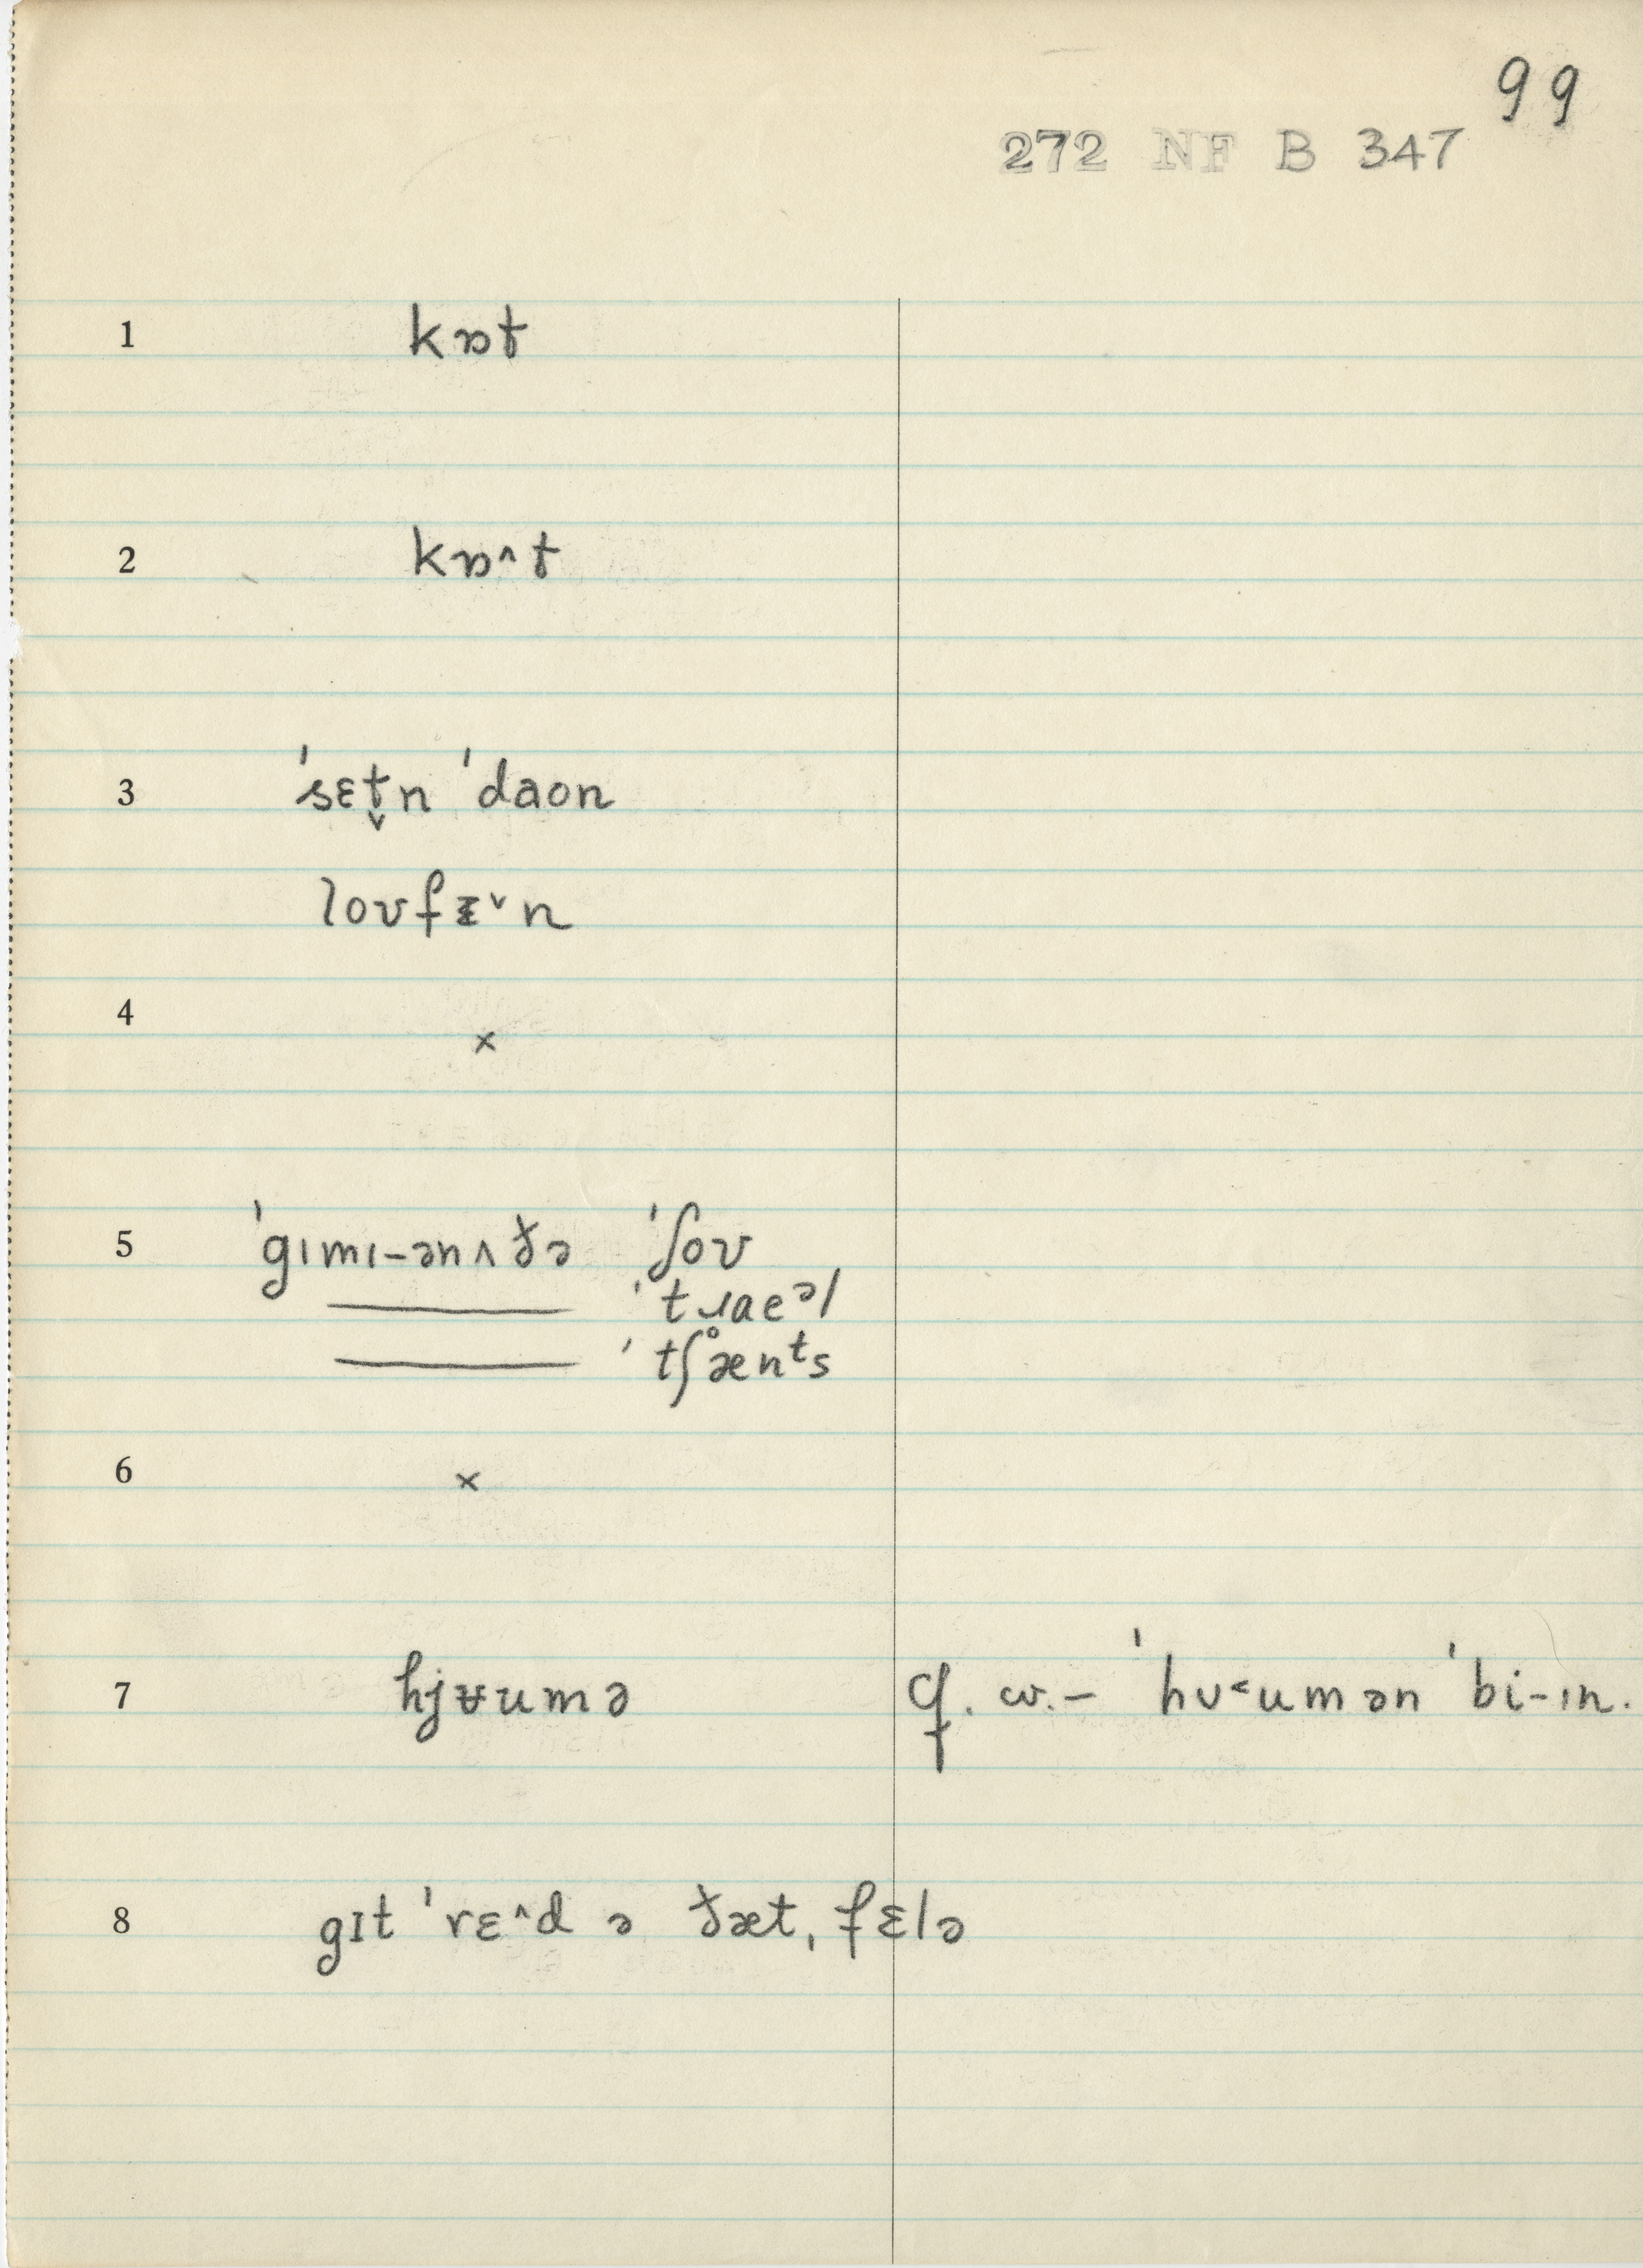 99
272 NF B 347
1 kɒt
2 kɒ^t
3 ˈsɛt̬n ˈdaon
loʊfɛ˅n
4 ×
5 ˈgɪmɪ-ənʌðə ˈʃoʊ
ˈtɹaeᵊl
ˈtʃæ̊nᵗs
6 ×
7 hjʉumə cf. w.– ˈhʋ˂umən ˈbi-ɪn.
8 gɪt ˈrɛ^d ə ðæt, fɛlə